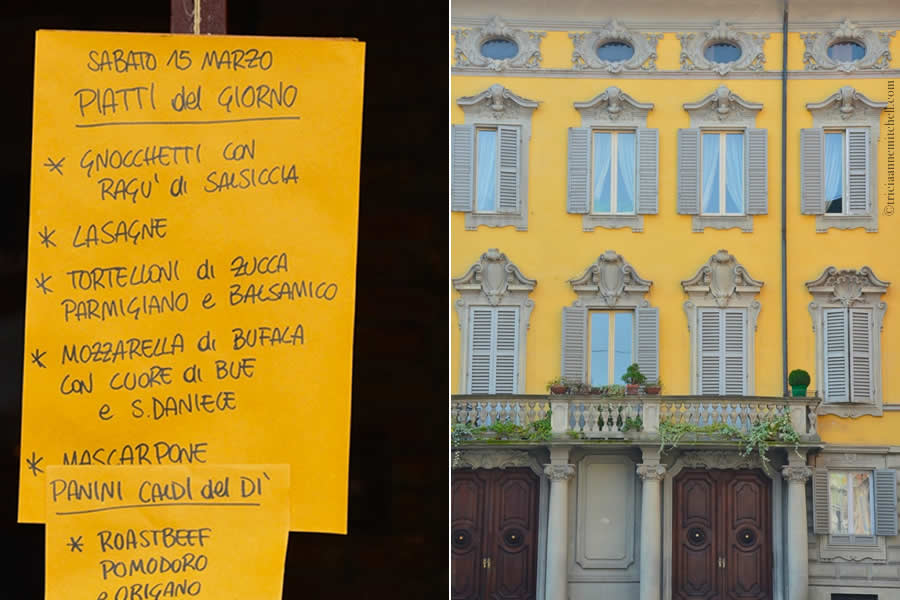 SABATO 15 MARZO
PIATTI del GIORNO
* GNOCCHETTI CON
RAGU' di SALSICCIA
* LASAGNE
* TORTELLONI di ZUCCA
PARMIGIANO e BALSAMICO
* MOZZARELLA di BUFALA
CON CUORE di BUE
e S.DANIELE
* MASCARPONE
PANINI CALDI del DÌ
* ROASTBEEF
POMODORO
e ORIGANO
©triciaannemitchell.com